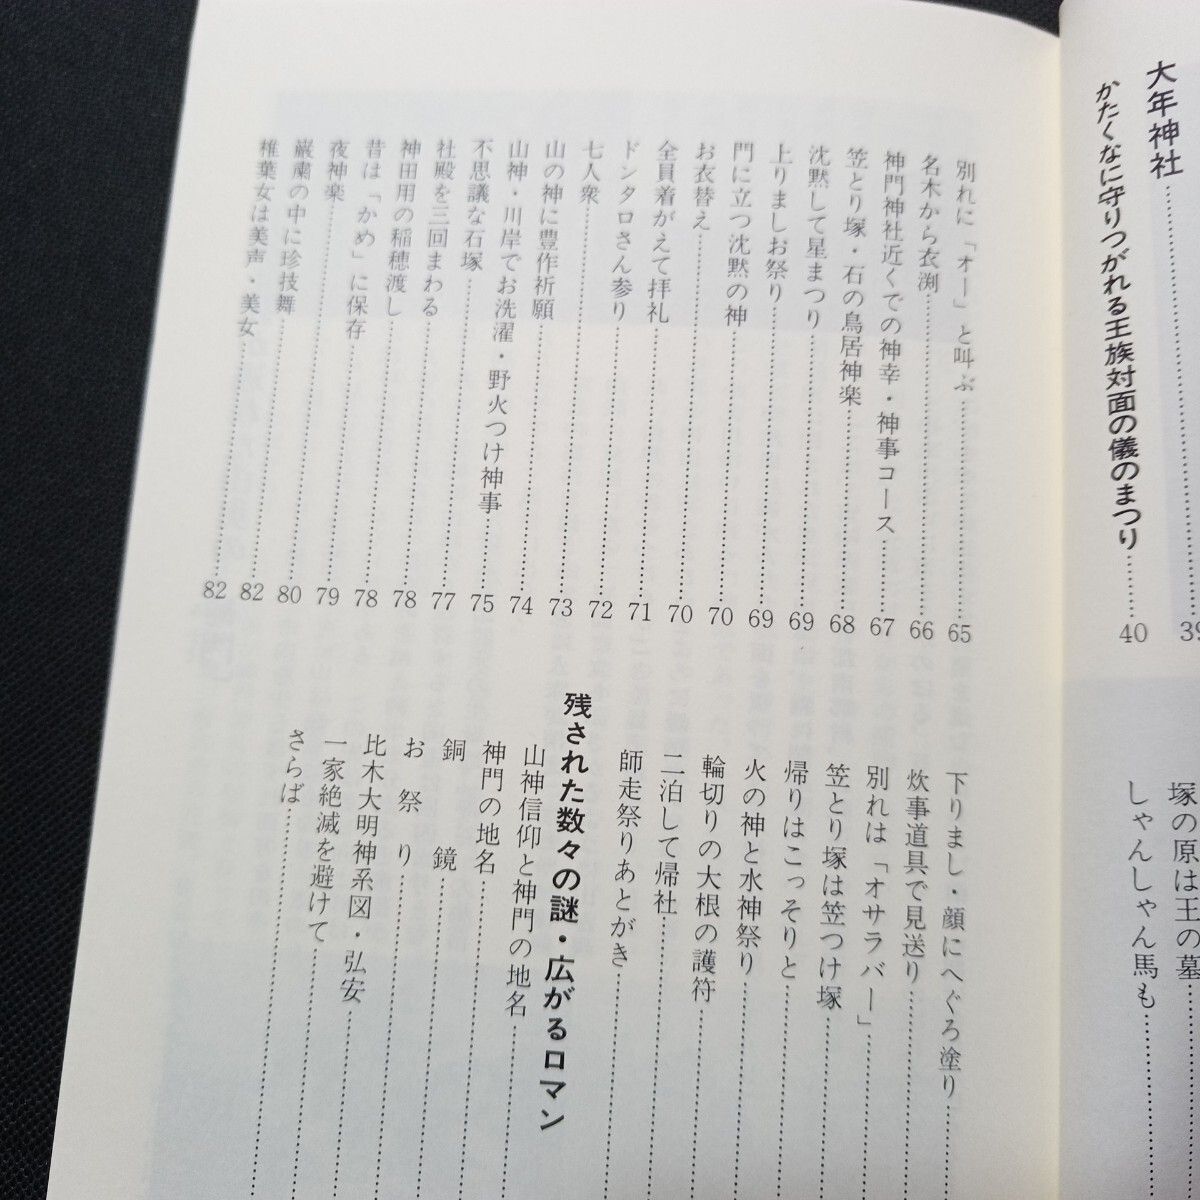 大年神社……39
かたくなに守りつがれる王族対面の儀のまつり……40
塚の原は王の墓……
しゃんしゃん馬も……
別れに「オー」と叫ぶ……65
名木から衣渕……66
神門神社近くでの神幸・神事コース……67
笠とり塚・石の鳥居神楽……68
沈黙して星まつり……69
上りましお祭り……69
門に立つ沈黙の神……70
お衣替え……70
全員着がえて拝礼……71
ドンタロさん参り……72
七人衆……73
山の神に豊作祈願……74
山神・川岸でお洗濯・野火つけ神事……75
不思議な石塚……77
社殿を三回まわる……78
神田用の稲穂渡し……78
昔は「かめ」に保存……79
夜神楽……80
厳粛の中に珍技舞……82
椎葉女は美声・美女……82
下りまし・顔にへぐろ塗り……
炊事道具で見送り……
別れは「オサラバー」……
笠とり塚は笠つけ塚……
帰りはこっそりと……
火の神と水神祭り……
輪切りの大根の護符……
二泊して帰社……
師走祭りあとがき……
残された数々の謎・広がるロマン
山神信仰と神門の地名……
神門の地名……
銅鏡……
お祭り……
比木大明神系図・弘安……
一家絶滅を避けて……
さらば……